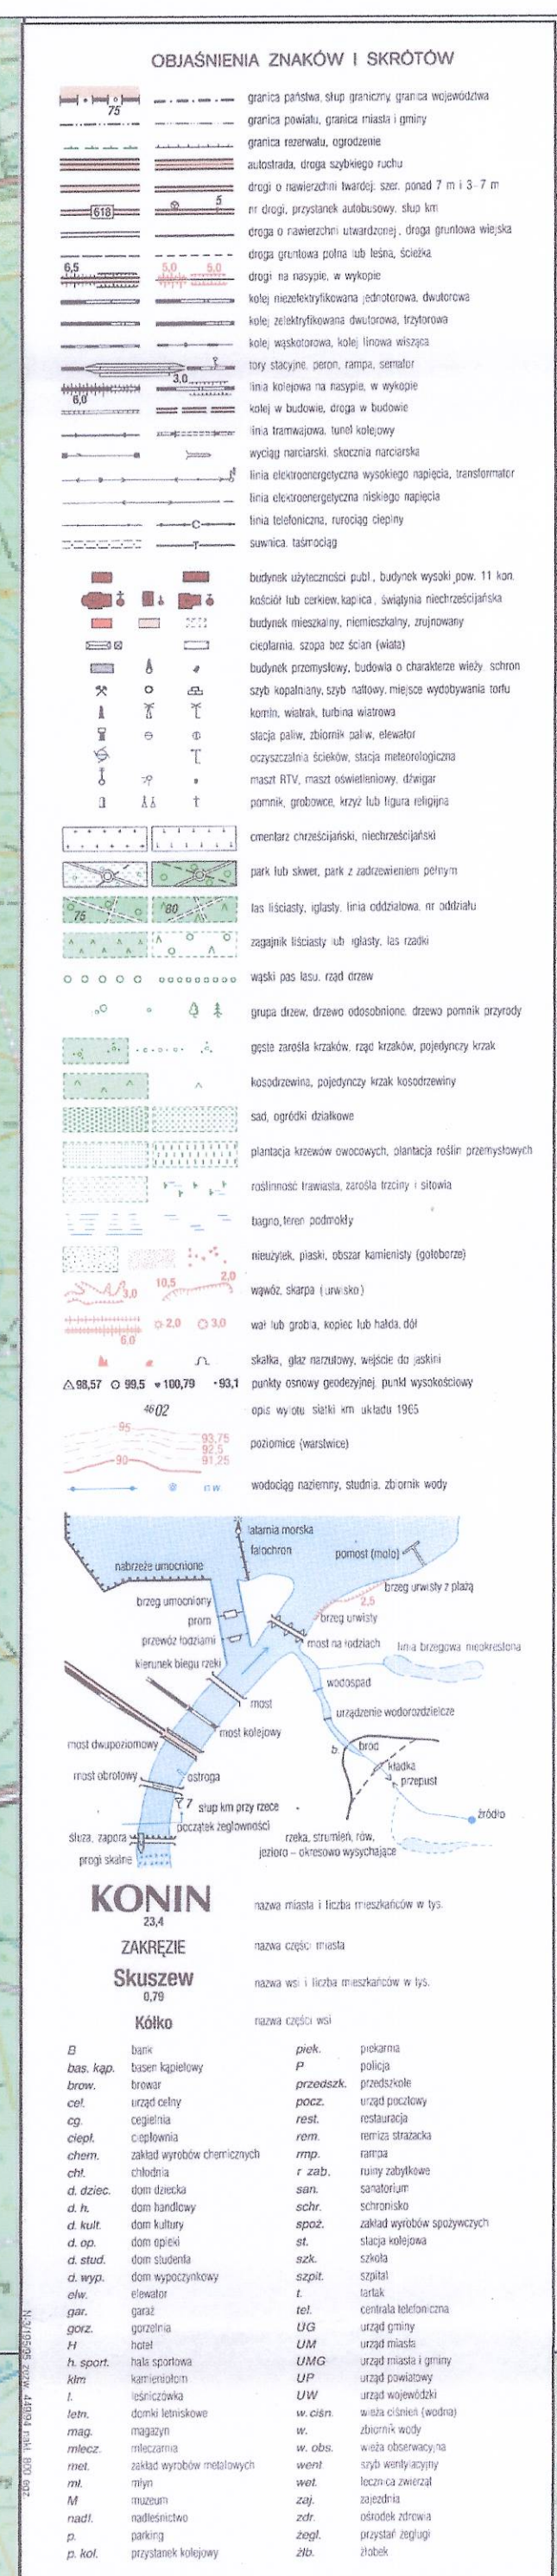 OBJAŚNIENIA ZNAKÓW I SKRÓTÓW
75 granica państwa, słup graniczny, granica województwa
granica powiatu, granica miasta i gminy
granica rezerwatu, ogrodzenie
autostrada, droga szybkiego ruchu
drogi o nawierzchni twardej: szer. ponad 7 m i 3-7 m
618 5 nr drogi, przystanek autobusowy, słup km
droga o nawierzchni utwardzonej, droga gruntowa wiejska
droga gruntowa polna lub leśna, ścieżka
6,5 5,0 5,0 drogi na nasypie, w wykopie
kolej niezelektryfikowana jednotorowa, dwutorowa
kolej zelektryfikowana dwutorowa, trzytorowa
kolej wąskotorowa, kolej linowa wisząca
tory stacyjne, peron, rampa, semafor
6,0 3,0 linia kolejowa na nasypie, w wykopie
kolej w budowie, droga w budowie
linia tramwajowa, tunel kolejowy
wyciąg narciarski, skocznia narciarska
linia elektroenergetyczna wysokiego napięcia, transformator
linia elektroenergetyczna niskiego napięcia
C linia telefoniczna, rurociąg cieplny
T suwnica, taśmociąg
budynek użyteczności publ., budynek wysoki pow. 11 kon.
kościół lub cerkiew, kaplica, świątynia niechrześcijańska
budynek mieszkalny, niemieszkalny, zrujnowany
cieplarnia, szopa bez ścian (wiata)
budynek przemysłowy, budowla o charakterze wieży, schron
szyb kopalniany, szyb naftowy, miejsce wydobywania torfu
komin, wiatrak, turbina wiatrowa
stacja paliw, zbiornik paliw, elewator
oczyszczalnia ścieków, stacja meteorologiczna
maszt RTV, maszt oświetleniowy, dźwigar
pomnik, grobowce, krzyż lub figura religijna
cmentarz chrześcijański, niechrześcijański
park lub skwer, park z zadrzewieniem pełnym
75 80 las liściasty, iglasty, linia oddziałowa, nr oddziału
zagajnik liściasty lub iglasty, las rzadki
wąski pas lasu, rząd drzew
grupa drzew, drzewo odosobnione, drzewo pomnik przyrody
gęste zarośla krzaków, rząd krzaków, pojedynczy krzak
kosodrzewina, pojedynczy krzak kosodrzewiny
sad, ogródki działkowe
plantacja krzewów owocowych, plantacja roślin przemysłowych
roślinność trawiasta, zarośla trzciny i sitowia
bagno, teren podmokły
nieużytek, piaski, obszar kamienisty (gołoborze)
3,0 10,5 2,0 wąwóz, skarpa (urwisko)
6,0 2,0 3,0 wał lub grobla, kopiec lub hałda, dół
skałka, głaz narzutowy, wejście do jaskini
98,57 99,5 100,79 93,1 punkty osnowy geodezyjnej, punkt wysokościowy
4602 opis wylotu siatki km układu 1965
95 93,75
92,5 poziomice (warstwice)
90 91,25
wodociąg naziemny, studnia, zbiornik wody
latarnia morska
falochron
nabrzeże umocnione
pomost (molo)
brzeg urwisty z plażą
2,5
brzeg umocniony
prom
brzeg urwisty
przewóz łodziami
most na łodziach
linia brzegowa nieokreślona
kierunek biegu rzeki
wodospad
most
urządzenie wodorozdzielcze
most kolejowy
most dwupoziomowy
b.
bród
kładka
most obrotowy
ostroga
przepust
7
słup km przy rzece
źródło
początek żeglowności
śluza, zapora
rzeka, strumień, rów,
jezioro – okresowo wysychające
progi skalne
KONIN nazwa miasta i liczba mieszkańców w tys.
23,4
ZAKRĘZIE nazwa części miasta
Skuszew nazwa wsi i liczba mieszkańców w tys.
0,79
Kółko nazwa części wsi
B bank
bas. kąp. basen kąpielowy
brow. browar
cel. urząd celny
cg. cegielnia
ciepł. ciepłownia
chem. zakład wyrobów chemicznych
chł. chłodnia
d. dziec. dom dziecka
d. h. dom handlowy
d. kult. dom kultury
d. op. dom opieki
d. stud. dom studenta
d. wyp. dom wypoczynkowy
elw. elewator
gar. garaż
gorz. gorzelnia
H hotel
h. sport. hala sportowa
kłm kamieniołom
l. leśniczówka
letn. domki letniskowe
mag. magazyn
mlecz. mleczarnia
met. zakład wyrobów metalowych
mł. młyn
M muzeum
nadl. nadleśnictwo
p. parking
p. kol. przystanek kolejowy
piek. piekarnia
P policja
przedszk. przedszkole
pocz. urząd pocztowy
rest. restauracja
rem. remiza strażacka
rmp. rampa
r zab. ruiny zabytkowe
san. sanatorium
schr. schronisko
spoż. zakład wyrobów spożywczych
st. stacja kolejowa
szk. szkoła
szpit. szpital
t. tartak
tel. centrala telefoniczna
UG urząd gminy
UM urząd miasta
UMG urząd miasta i gminy
UP urząd powiatowy
UW urząd wojewódzki
w. ciśn. wieża ciśnień (wodna)
w. zbiornik wody
w. obs. wieża obserwacyjna
went. szyb wentylacyjny
wet. lecznica zwierząt
zaj. zajezdnia
zdr. ośrodek zdrowia
żegl. przystań żeglugi
żłb. żłobek